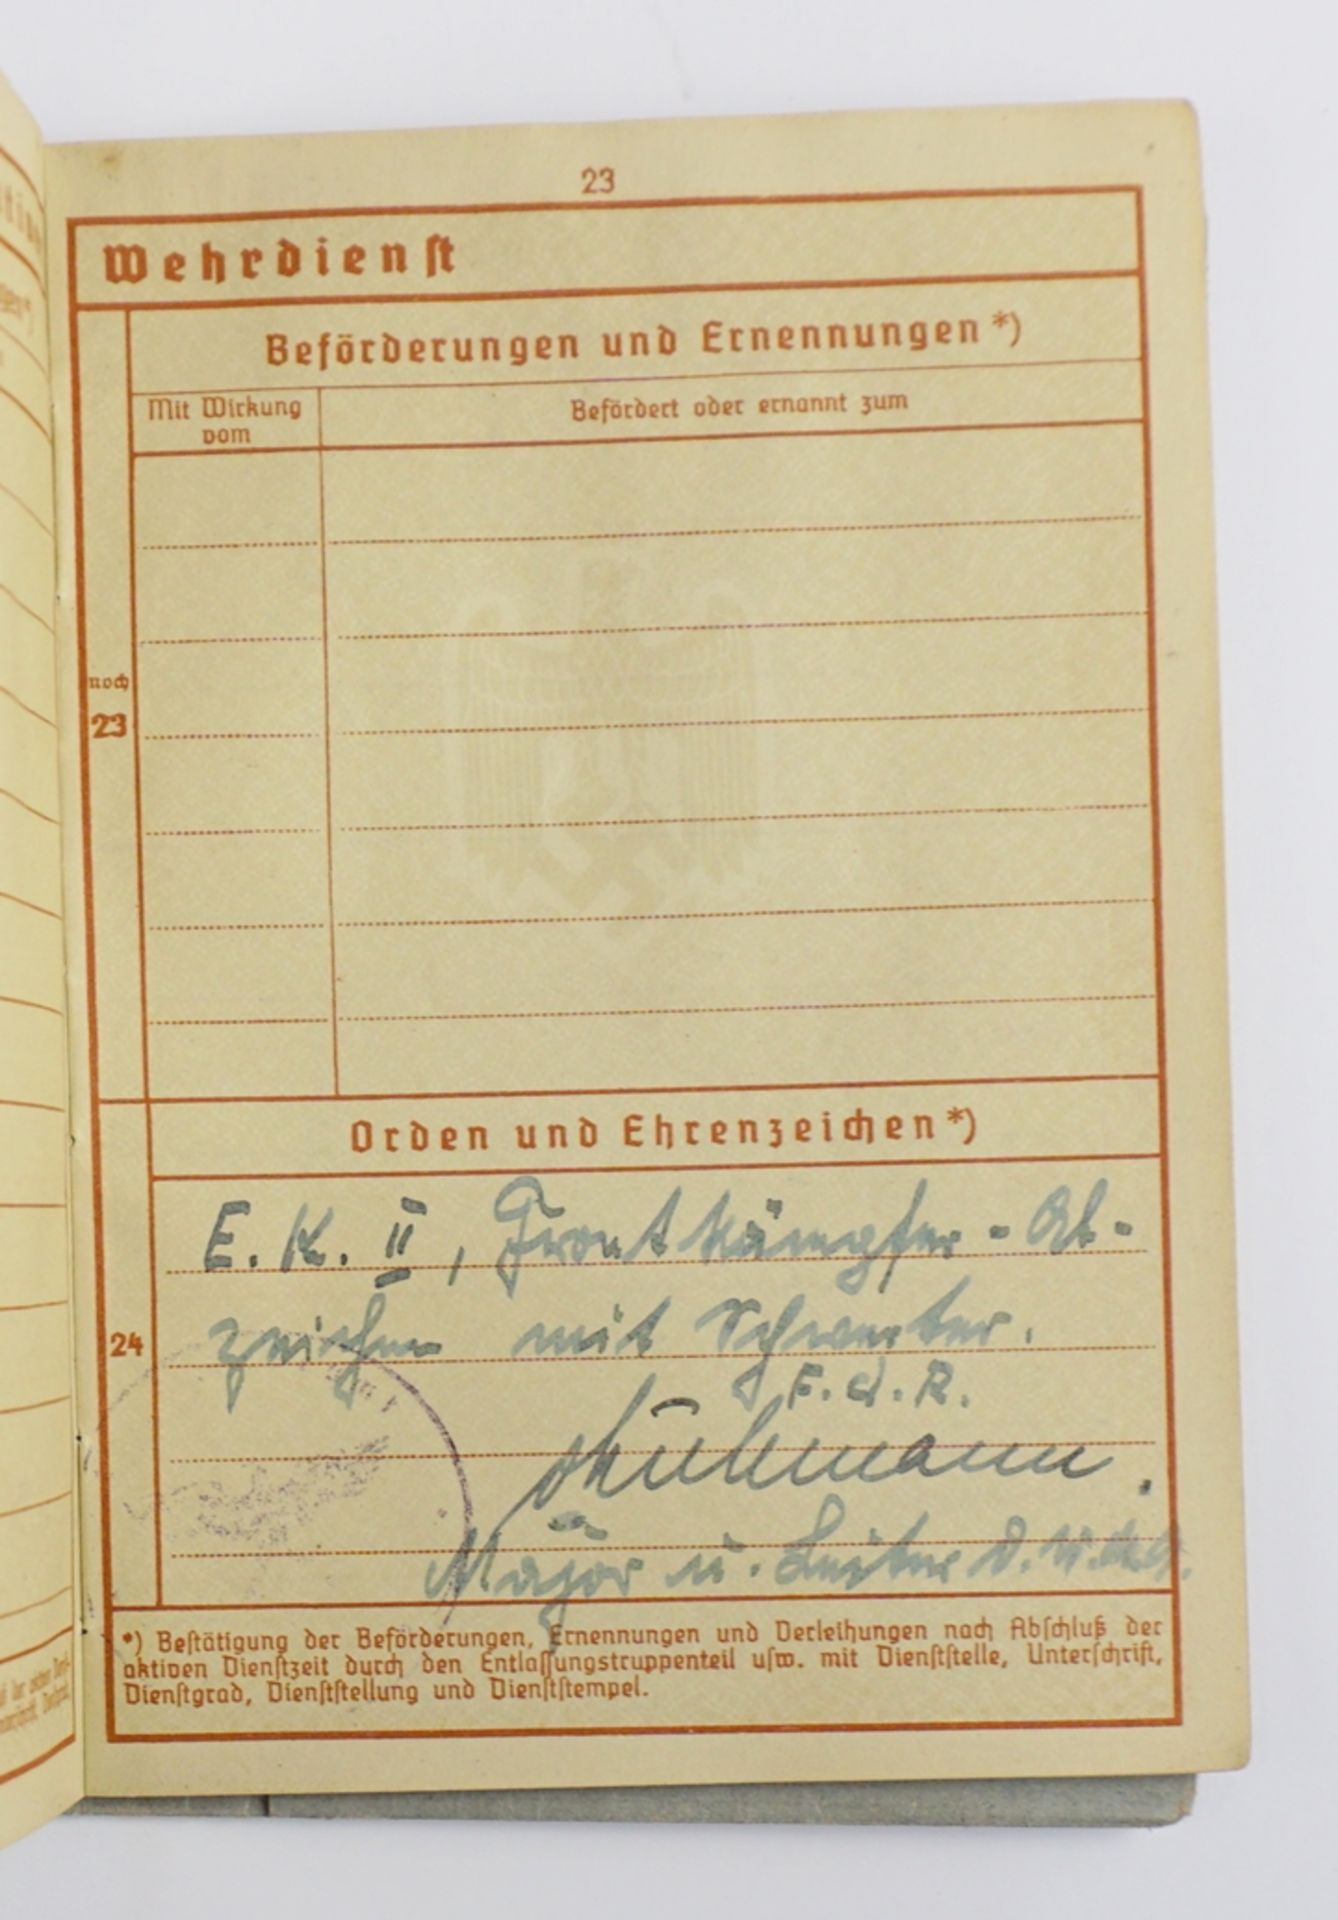 23
Wehrdienst
Beförderungen und Ernennungen *)
Mit Wirkung
vom
Befördert oder ernannt zum
noch
23
Orden und Ehrenzeichen *)
E. K. II, Frontkämpfer-Ab-
zeichen mit Schwerter.
24
F. d. R.
Major u. Leiter d.
*) Bestätigung der Beförderungen, Ernennungen und Verleihungen nach Abschluß der
aktiven Dienstzeit durch den Entlassungstruppenteil usw. mit Dienststelle, Unterschrift,
Dienstgrad, Dienststellung und Dienststempel.